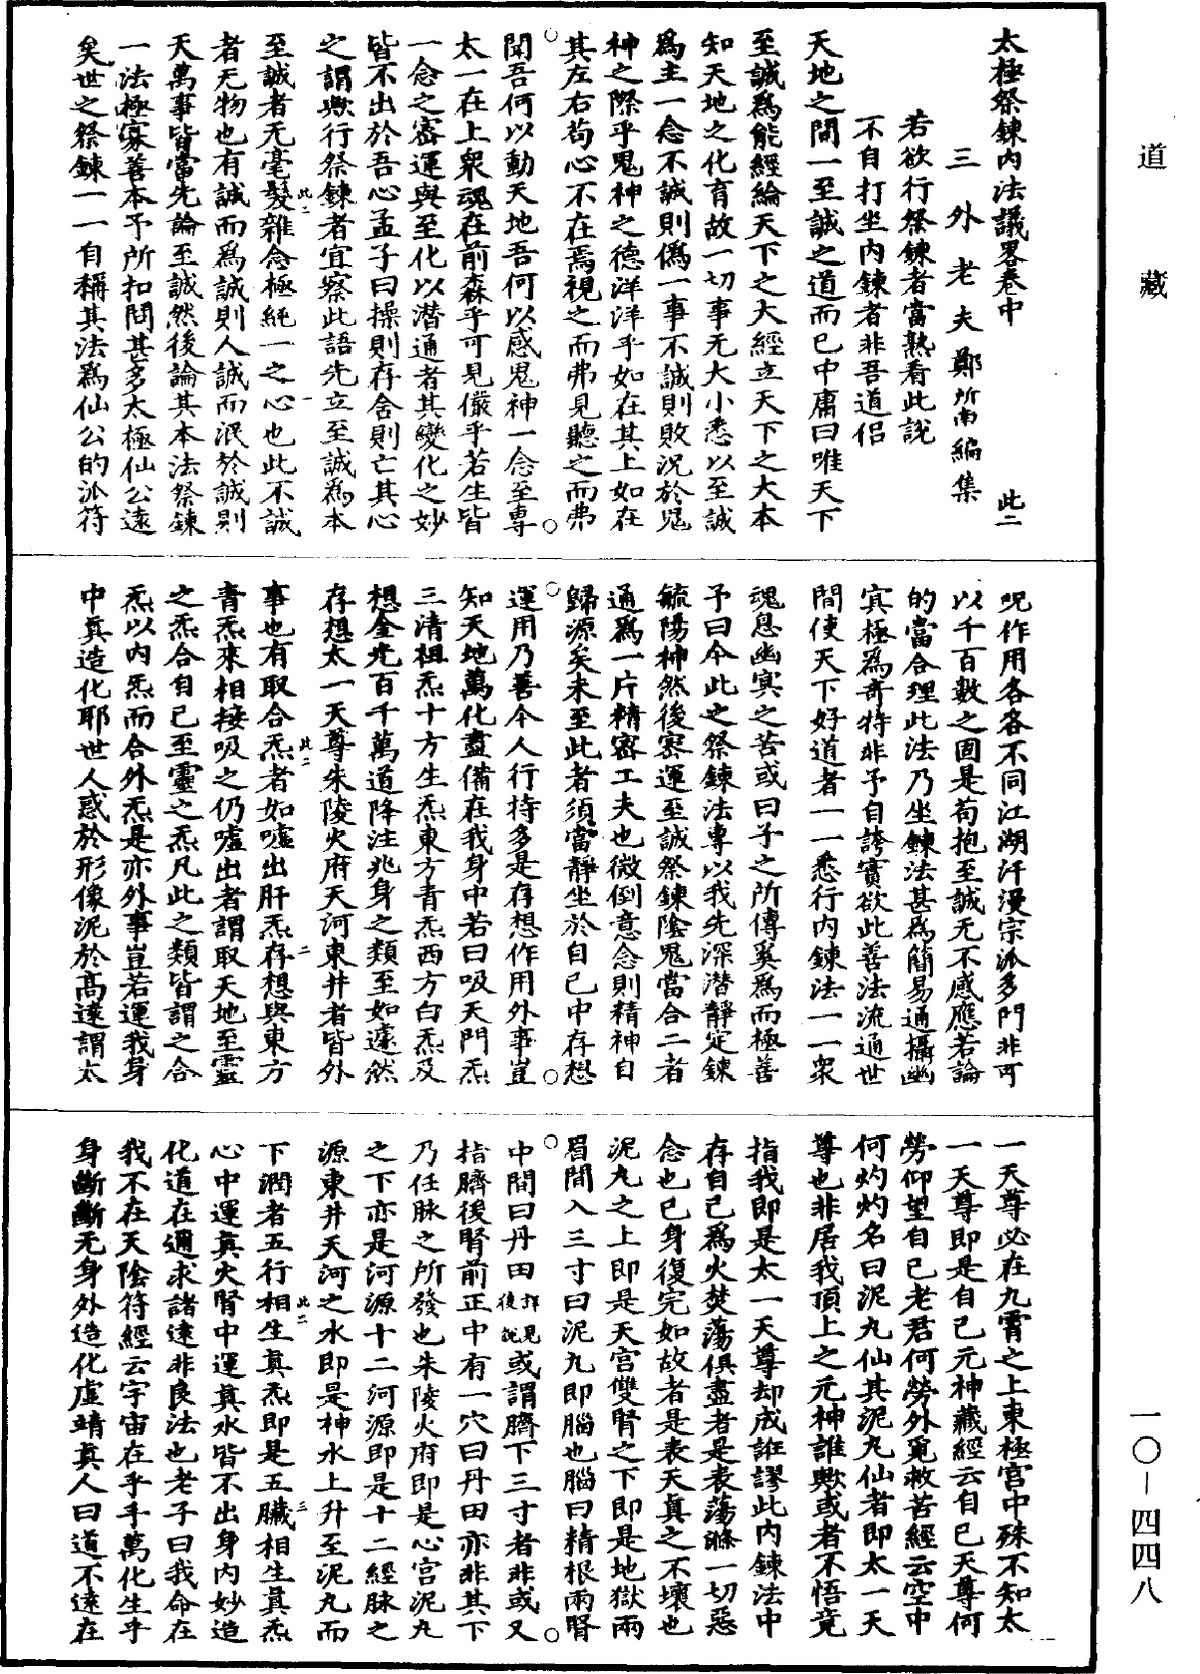 道藏
太極祭鍊內法議畧卷中　此二
三外老夫鄭所南編集
若欲行祭鍊者當熟看此說
不自打坐內鍊者非吾道侶
天地之間一至誠之道而已中庸曰唯天下
至誠爲能經綸天下之大經立天下之大本
知天地之化育故一切事无大小悉以至誠
爲主一念不誠則僞一事不誠則敗況於鬼
神之際乎鬼神之德洋洋乎如在其上如在
其左右苟心不在焉視之而弗見聽之而弗
聞吾何以動天地吾何以感鬼神一念至專
太一在上衆魂在前森乎可見儼乎若生皆
一念之密運與至化以潛通者其變化之妙
皆不出於吾心孟子曰操則存舍則亡其心
之謂歟行祭鍊者宜察此語先立至誠爲本
至誠者无毫髮雜念極純一之心也此不誠
此二　一
者无物也有誠而爲誠則人誠而泯於誠則
天萬事皆當先論至誠然後論其本法祭鍊
一法極寡善本予所扣問其多太極仙公遠
矣世之祭鍊一一自稱其法爲仙公的泒符
呪作用各各不同江湖汗漫宗泒多門非可
以千百數之固是苟抱至誠无不感應若論
的當合理此法乃坐鍊法甚爲簡易通攝幽
冥極爲奇特非予自誇實欲此善法流通世
間使天下好道者一一悉行內鍊法一一衆
魂息幽冥之苦或曰子之所傳奚爲而極善
予曰今此之祭鍊法專以我先深潛靜定鍊
毓陽神然後密運至誠祭鍊陰鬼當合二者
通爲一片精密工夫也微倒意念則精神自
歸源矣未至此者須當靜坐於自己中存想
運用乃善今人行持多是存想作用外事豈
知天地萬化盡備在我身中若曰吸天門炁
三清祖炁十方生炁東方青炁西方白炁及
想金光百千萬道降注兆身之類至如遽然
存想太一天尊朱陵火府天河東井者皆外
事也有取合炁者如噓出肝炁存想與東方
此二　二
青炁來相接吸之仍噓出者謂取天地至靈
之炁合自己至靈之炁凡此之類皆謂之合
炁以內炁而合外炁是亦外事豈若運我身
中眞造化耶世人惑於形像泥於高遠謂太
一天尊必在九霄之上東極宮中殊不知太
一天尊即是自己元神藏經云自已天尊何
勞仰望自己老君何勞外覓救苦經云空中
何灼灼名曰泥丸仙其泥丸仙者即太一天
尊也非居我頂上之元神誰歟或者不悟竟
指我即是太一天尊却成誑謬此內鍊法中
存自己爲火焚蕩俱盡者是表蕩滌一切惡
念也已身復完如故者是表天真之不壞也
泥丸之上即是天宮雙腎之下即是地獄兩
眉間入三寸曰泥丸即腦也腦曰精根兩腎
中間曰丹田詳見後說或謂臍下三寸者非或又
指臍後腎前正中有一穴曰丹田亦非其下
乃任脉之所發也朱陵火府即是心宮泥丸
之下亦是河源十二河源即是十二經脉之
源東井天河之水即是神水上升至泥丸而
下潤者五行相生眞炁即是五臟相生眞炁
此二　三
心中運眞火腎中運眞水皆不出身內妙造
化道在邇求諸遠非良法也老子曰我命在
我不在天陰符經云宇宙在乎手萬化生乎
身斷斷无身外造化虛靖真人曰道不遠在
一〇—四四八